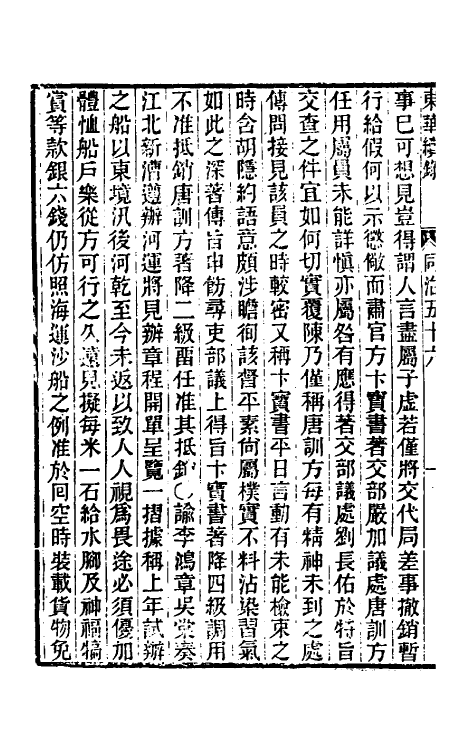 東華續錄 同治五十六
事已可想見豈得謂人言盡屬子虛若僅將交代局差事撤銷暫
行給假何以示懲儆而肅官方卞寶書著交部嚴加議處唐訓方
任用屬員未能詳愼亦屬咎有應得著交部議處劉長佑於特旨
交查之件宜如何切實覆陳乃僅稱唐訓方每有精神未到之處
傳問接見該員之時較密又稱卞寶書平日言動有未能檢束之
時含胡隱約語意頗涉瞻徇該督平素尙屬樸實不料沾染習氣
如此之深著傳旨申飭尋吏部議上得旨卞寶書著降四級調用
不准抵銷唐訓方著降二級留任准其抵銷○諭李鴻章吳棠奏
江北新漕遵辦河運將見辦章程開單呈覽一摺據稱上年試辦
之船以東境汛後河乾至今未返以致人人視爲畏途必須優加
體恤船戶樂從方可行之久遠見擬每米一石給水腳及神福犒
賞等款銀六錢仍仿照海運沙船之例准於回空時裝載貨物免